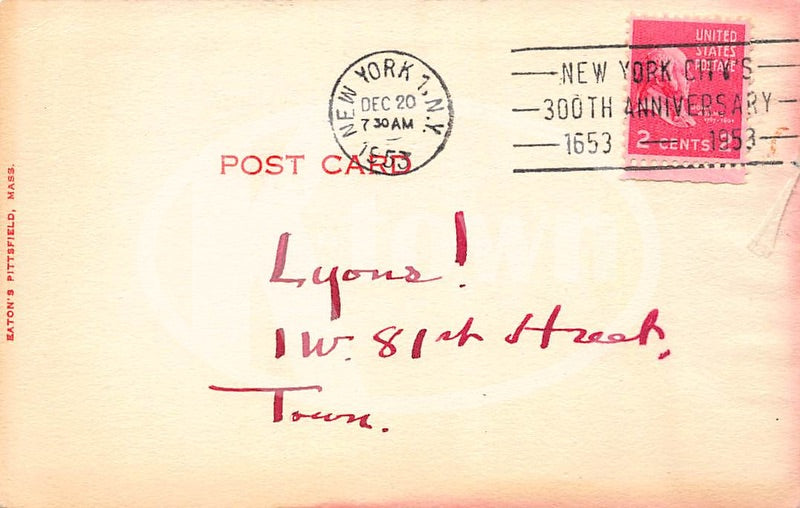 NEW YORK 1, N.Y.
DEC 20
7 30 AM
1953
UNITED
STATES
POSTAGE
NEW YORK CITY'S
300TH ANNIVERSARY
1653 1953
2 CENTS
POST CARD
EATON'S PITTSFIELD, MASS.
Lyons!
1 W. 81st Street,
Town.